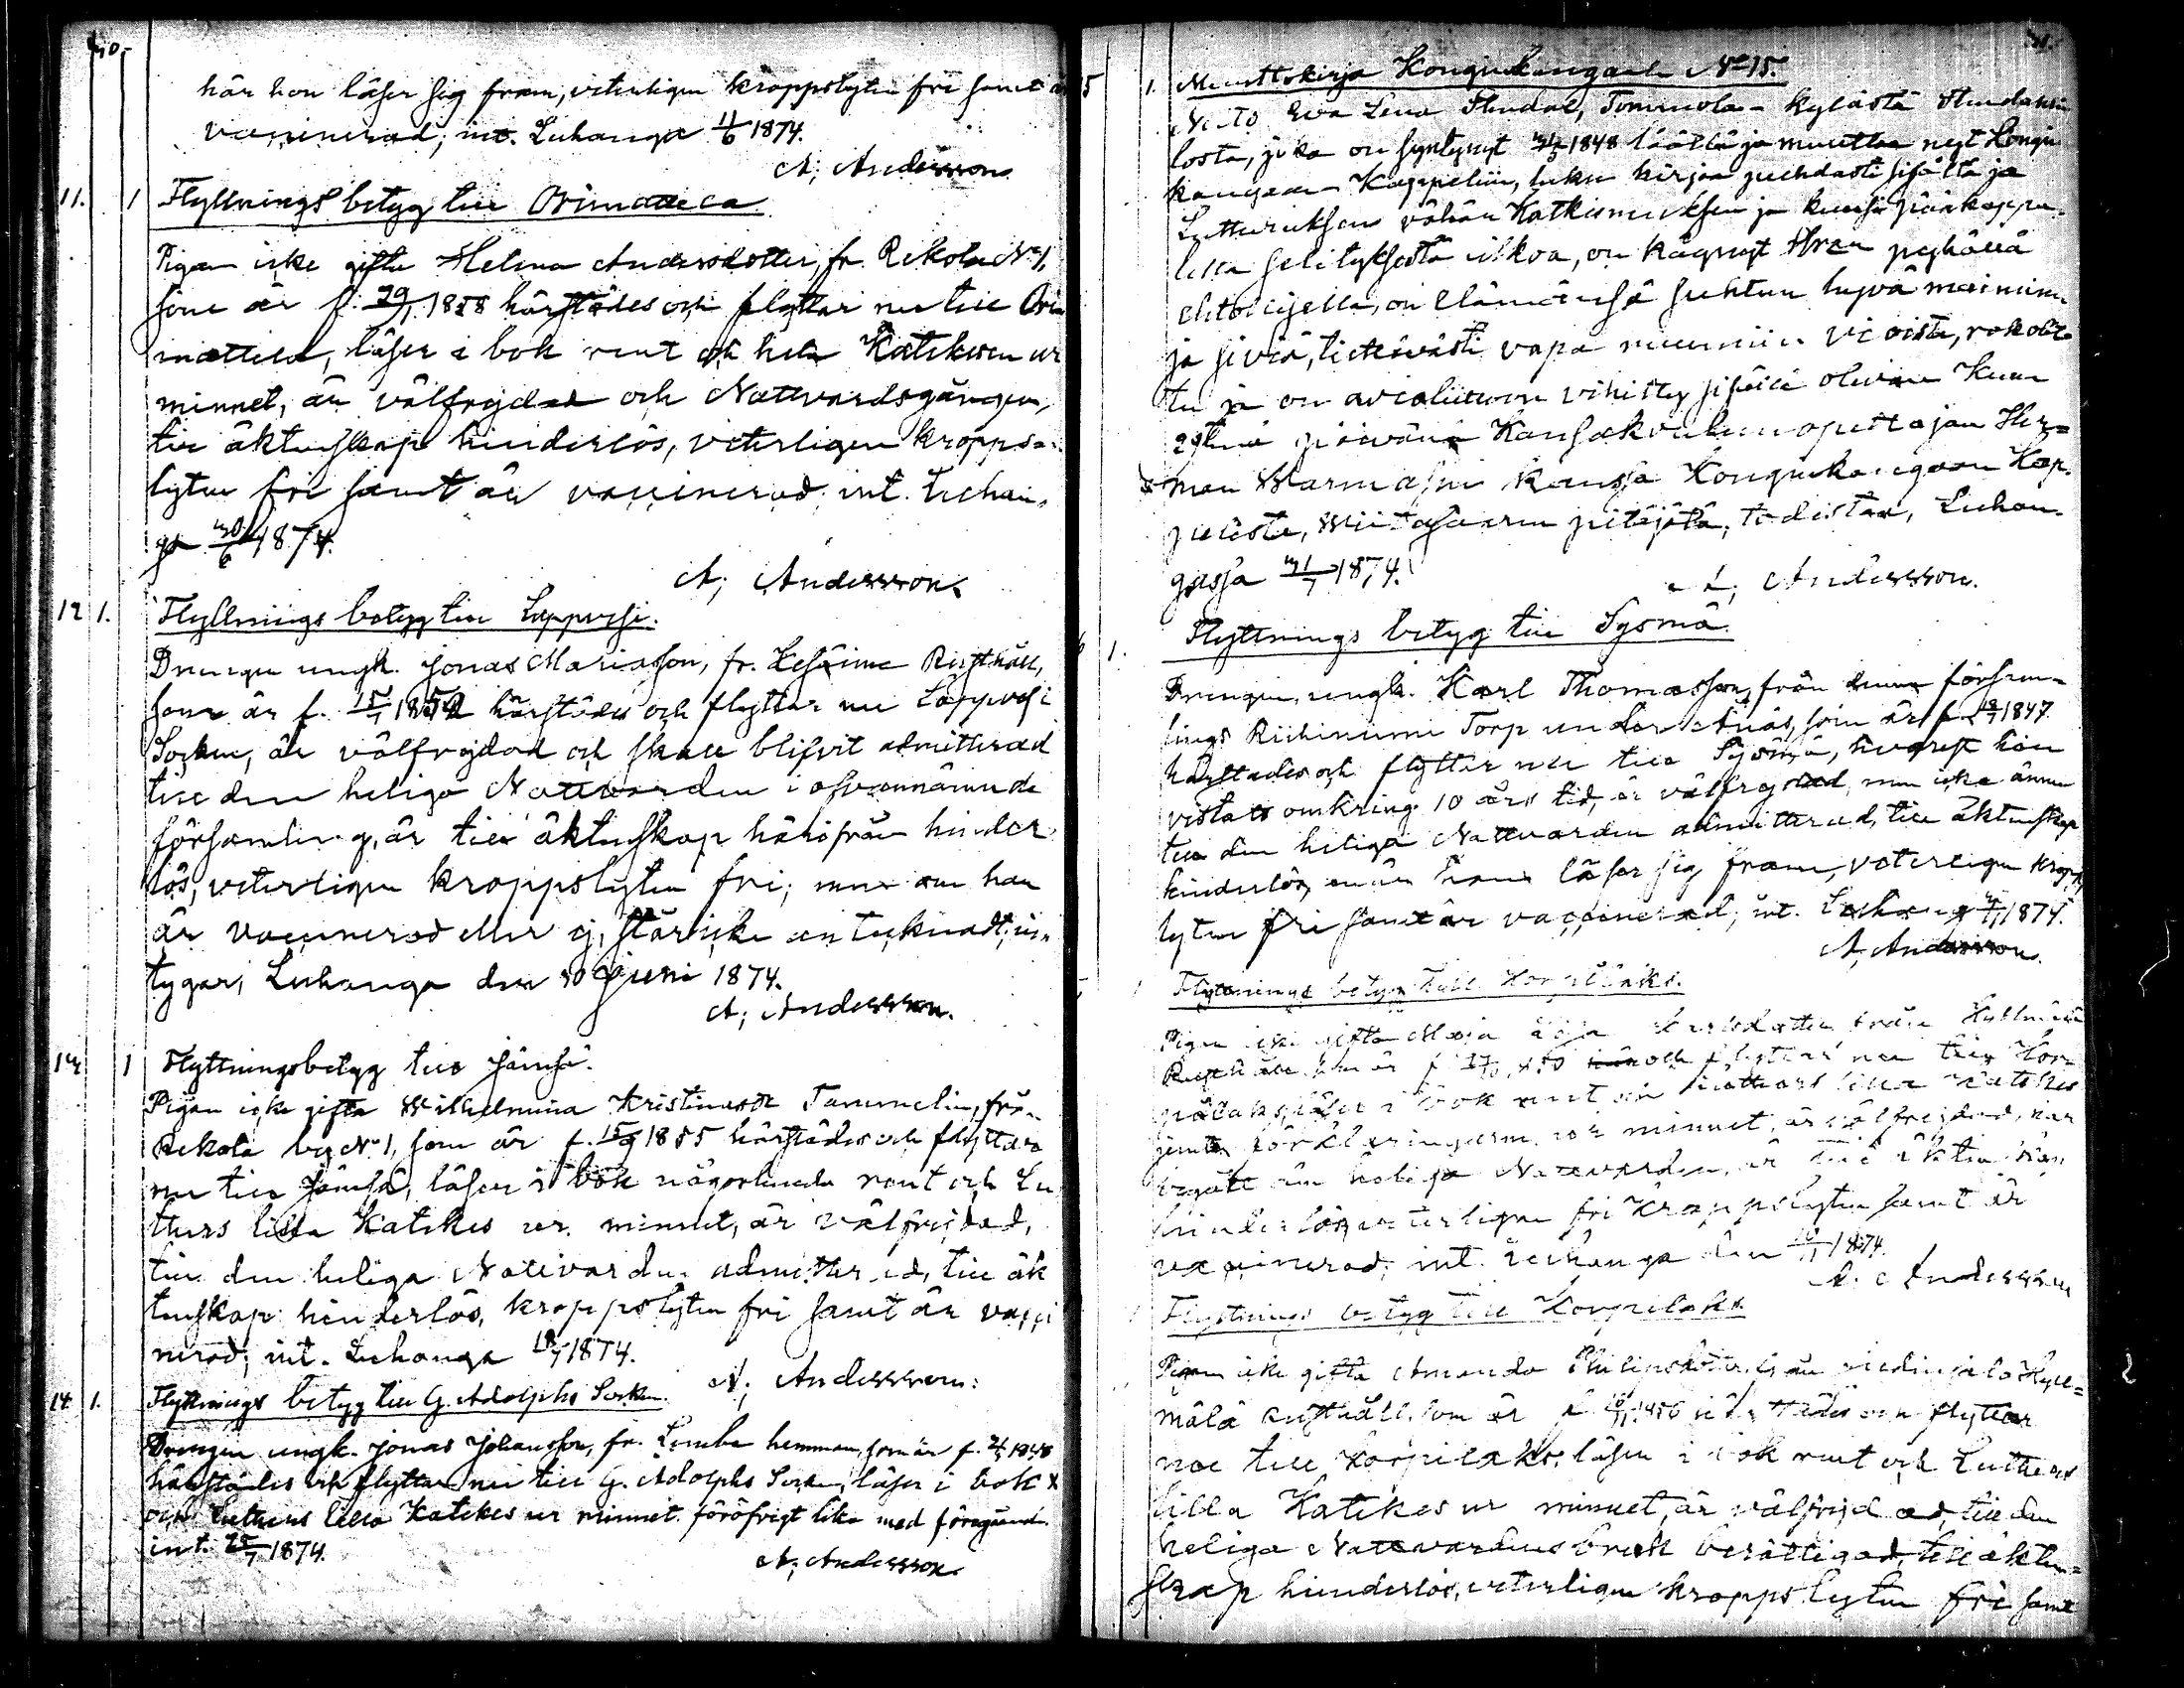 40.
här hon läser sig fram, veterligen kroppslyten fri samt är
vaccinerad; int. Luhanga 11/6 1874.
A; Andersson.
11. 1 Flyttnings betyg till Orimattila
Pigan icke gifta Helena Andersdotter, fr. Rekola No 1,
som är f. 29/1 1858 härstädes och flyttar nu till Ori
mattila, läser i bok rent och hela Katekesen ur
minnet, är välfrejdad och Nattvardsgången,
till äktenskap hinderlös, veterligen kropps-
lyten fri samt är vaccinerad; int. Luhan-
ga 30/6 1874.
A; Andersson.
12 1. Flyttnings betyg till Lappvesi.
Drengen ungk. Jonas Mariasson, fr. Rusthåll,
som är f. härstädes och flyttar nu Lappvesi
Socken, är välfrejdad och skall blifvit admitterad
till den heliga Nattvarden i ofvannämnde
församling, är till äktenskap härifrån hinder
lös, veterligen kroppslyten fri; men om han
är vaccinerad eller ej, står icke antecknadt; in-
tygar, Luhanga den 30 Juni 1874.
A; Andersson.
13 1 Flyttningsbetyg till Jämsä.
Pigan icke gifta Wilhelmina Kristinasdr Tammelin, från
Rekola by No 1, som är f. 15/9 1855 härstädes och flyttar
nu till Jämsä, läser i bok någorlunda rent och Lu
thers lilla Katekes ur minnet, är välfrejdad,
till den heliga Nattvarden admitterad, till äk
tenskap hinderlös, kroppslyten fri samt är vacci
nerad; int. Luhanga 18/7 1874.
A; Andersson.
14 1. Flyttnings betyg till G. Adolphs Socken.
Drengen ungk. Jonas Johansson, fr. hemman, som är f. 1848
härstädes och flyttar nu till G. Adolphs Socken, läser i bok
och Luthers lilla Katekes ur minnet. föröfrigt lika med föregående
int. 25/7 1874.
A; Andersson.
41.
15 1. Muuttokirja Konginkangaale No 15.
Neito Eva Lena Stendal, Tommola- kylästä
losta, joka on syntynyt 1848 täällä ja muuttaa nyt Kongin
kangaan- Kappeliin, lukee kirjaa puhdasti sisältä ja
Lutteruksen vähän Katkismuksen ja kuusi pääkappa-
letta selityksestä ulkoa, on käynyt Herran pyhällä
ehtoollisella, on elämänsä suhteen hyvä maineinen
ja siviä, tiettävästi vapa ruumiin vioista, rokotet-
tu ja on avioliittoon vihitty sisällä olevan Kuun
päivänä Kansakoulun opettajan Her-
man Warmasen kanssa Konginkangaan Kap-
pelista, Wiitasaaren pitäjätä; todistaa, Luhan-
gassa 31/7 1874.
A; Andersson.
1. Flyttnings betyg till Sysmä.
Drengen, ungk. Karl Thomasson, från denna försam-
lings Riihiniemi Torp under Anäs, som är f. 1847
härstädes och flyttar nu till Sysmä, hvarest han
vistats omkring 10 års tid, är välfrejdad, men icke ännu
till den heliga Nattvarden admitterad, till äktenskap
hinderlös, läser sig fram, veterligen kropps
lyten fri samt är vaccinerad; int. Luhanga 1874.
A; Andersson.
Flyttnings betyg till Korpilaks.
Pigan icke gifta Maja från
Rusthåll som är f och flyttar nu till Kor-
pilaks, läser i bok rent och Luthers lilla Katekes
jemte förklaringarne ur minnet, är välfrejdad, har
begått den heliga Nattvarden, är till äktenskap
hinderlös, veterligen fri kroppslyten samt är
vaccinerad; int. Luhanga den 1874.
A. Andersson
Flyttnings betyg till Korpilaks.
Pigan icke gifta Amanda
mälä rusthåll, som är f 1856 härstädes och flyttar
nu till Korpilaks, läser i bok rent och Luthers
lilla Katekes ur minnet, är välfrejdad, till den
heliga Nattvardens bruk berättigad, till äkten-
skap hinderlös, veterligen kroppslyten fri samt